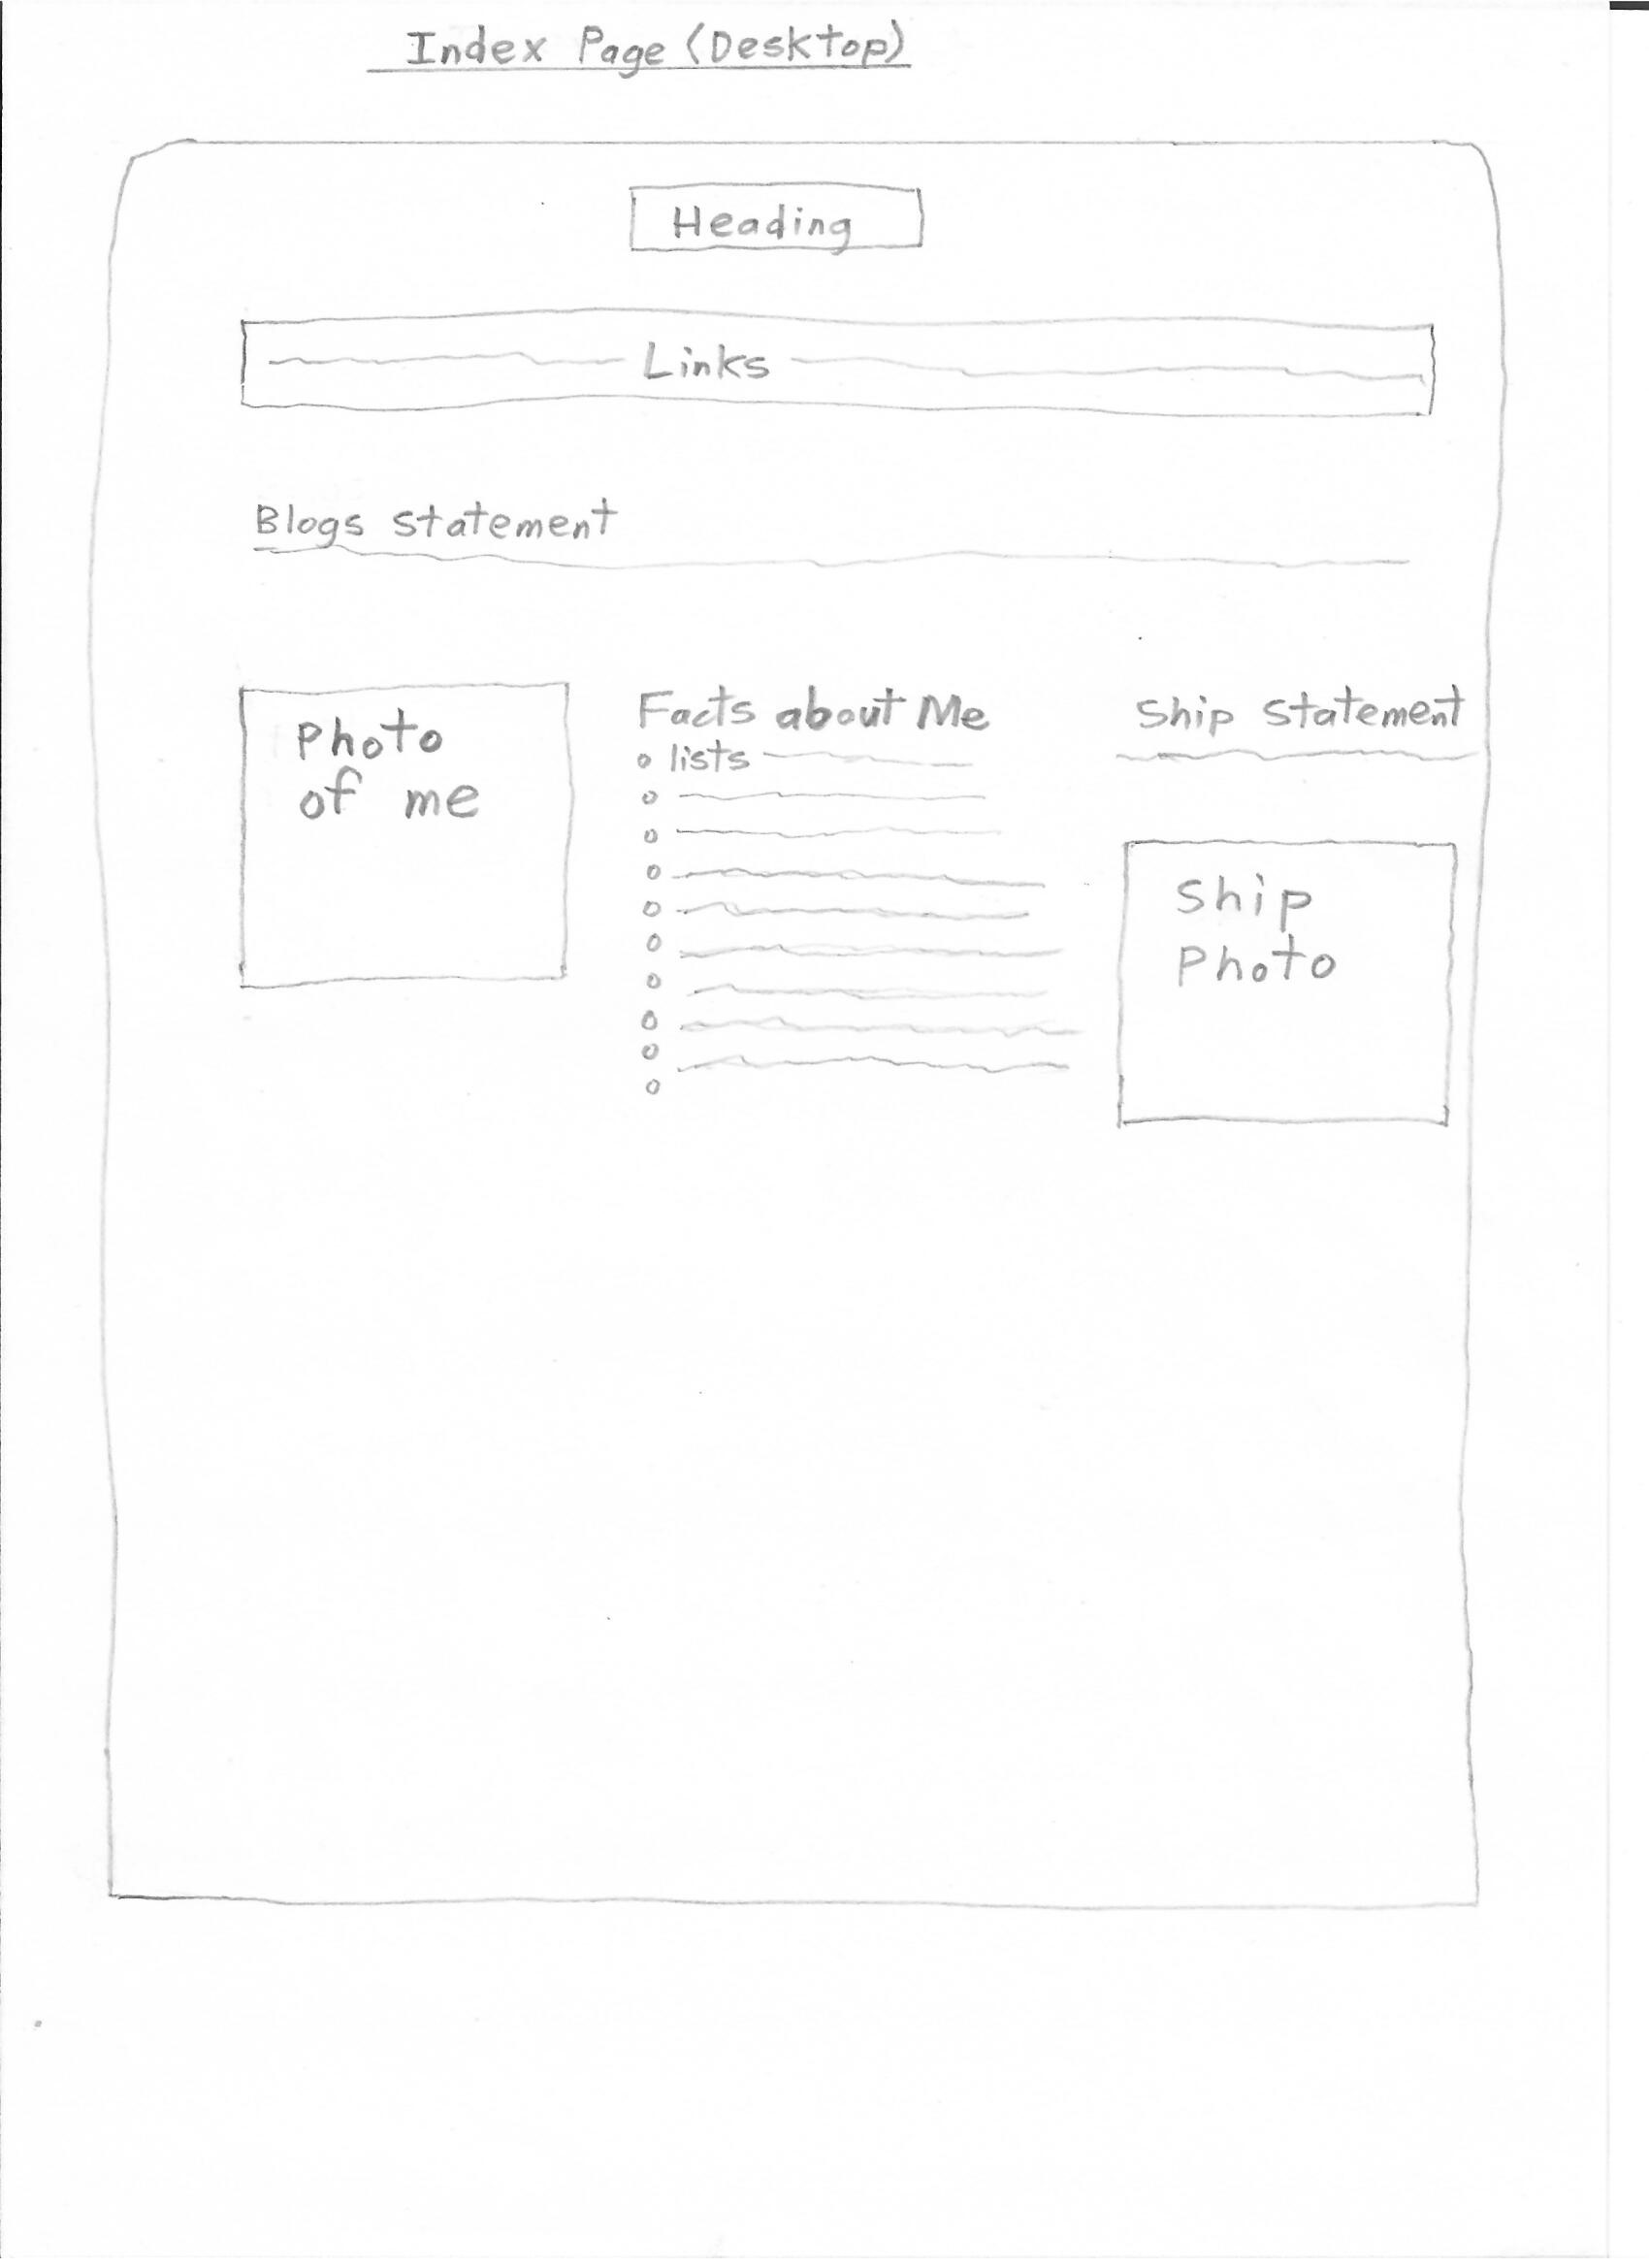 Index Page (Desktop)
Heading
Links
Blogs statement
Photo
of me
Facts about Me
lists
Ship statement
Ship
Photo